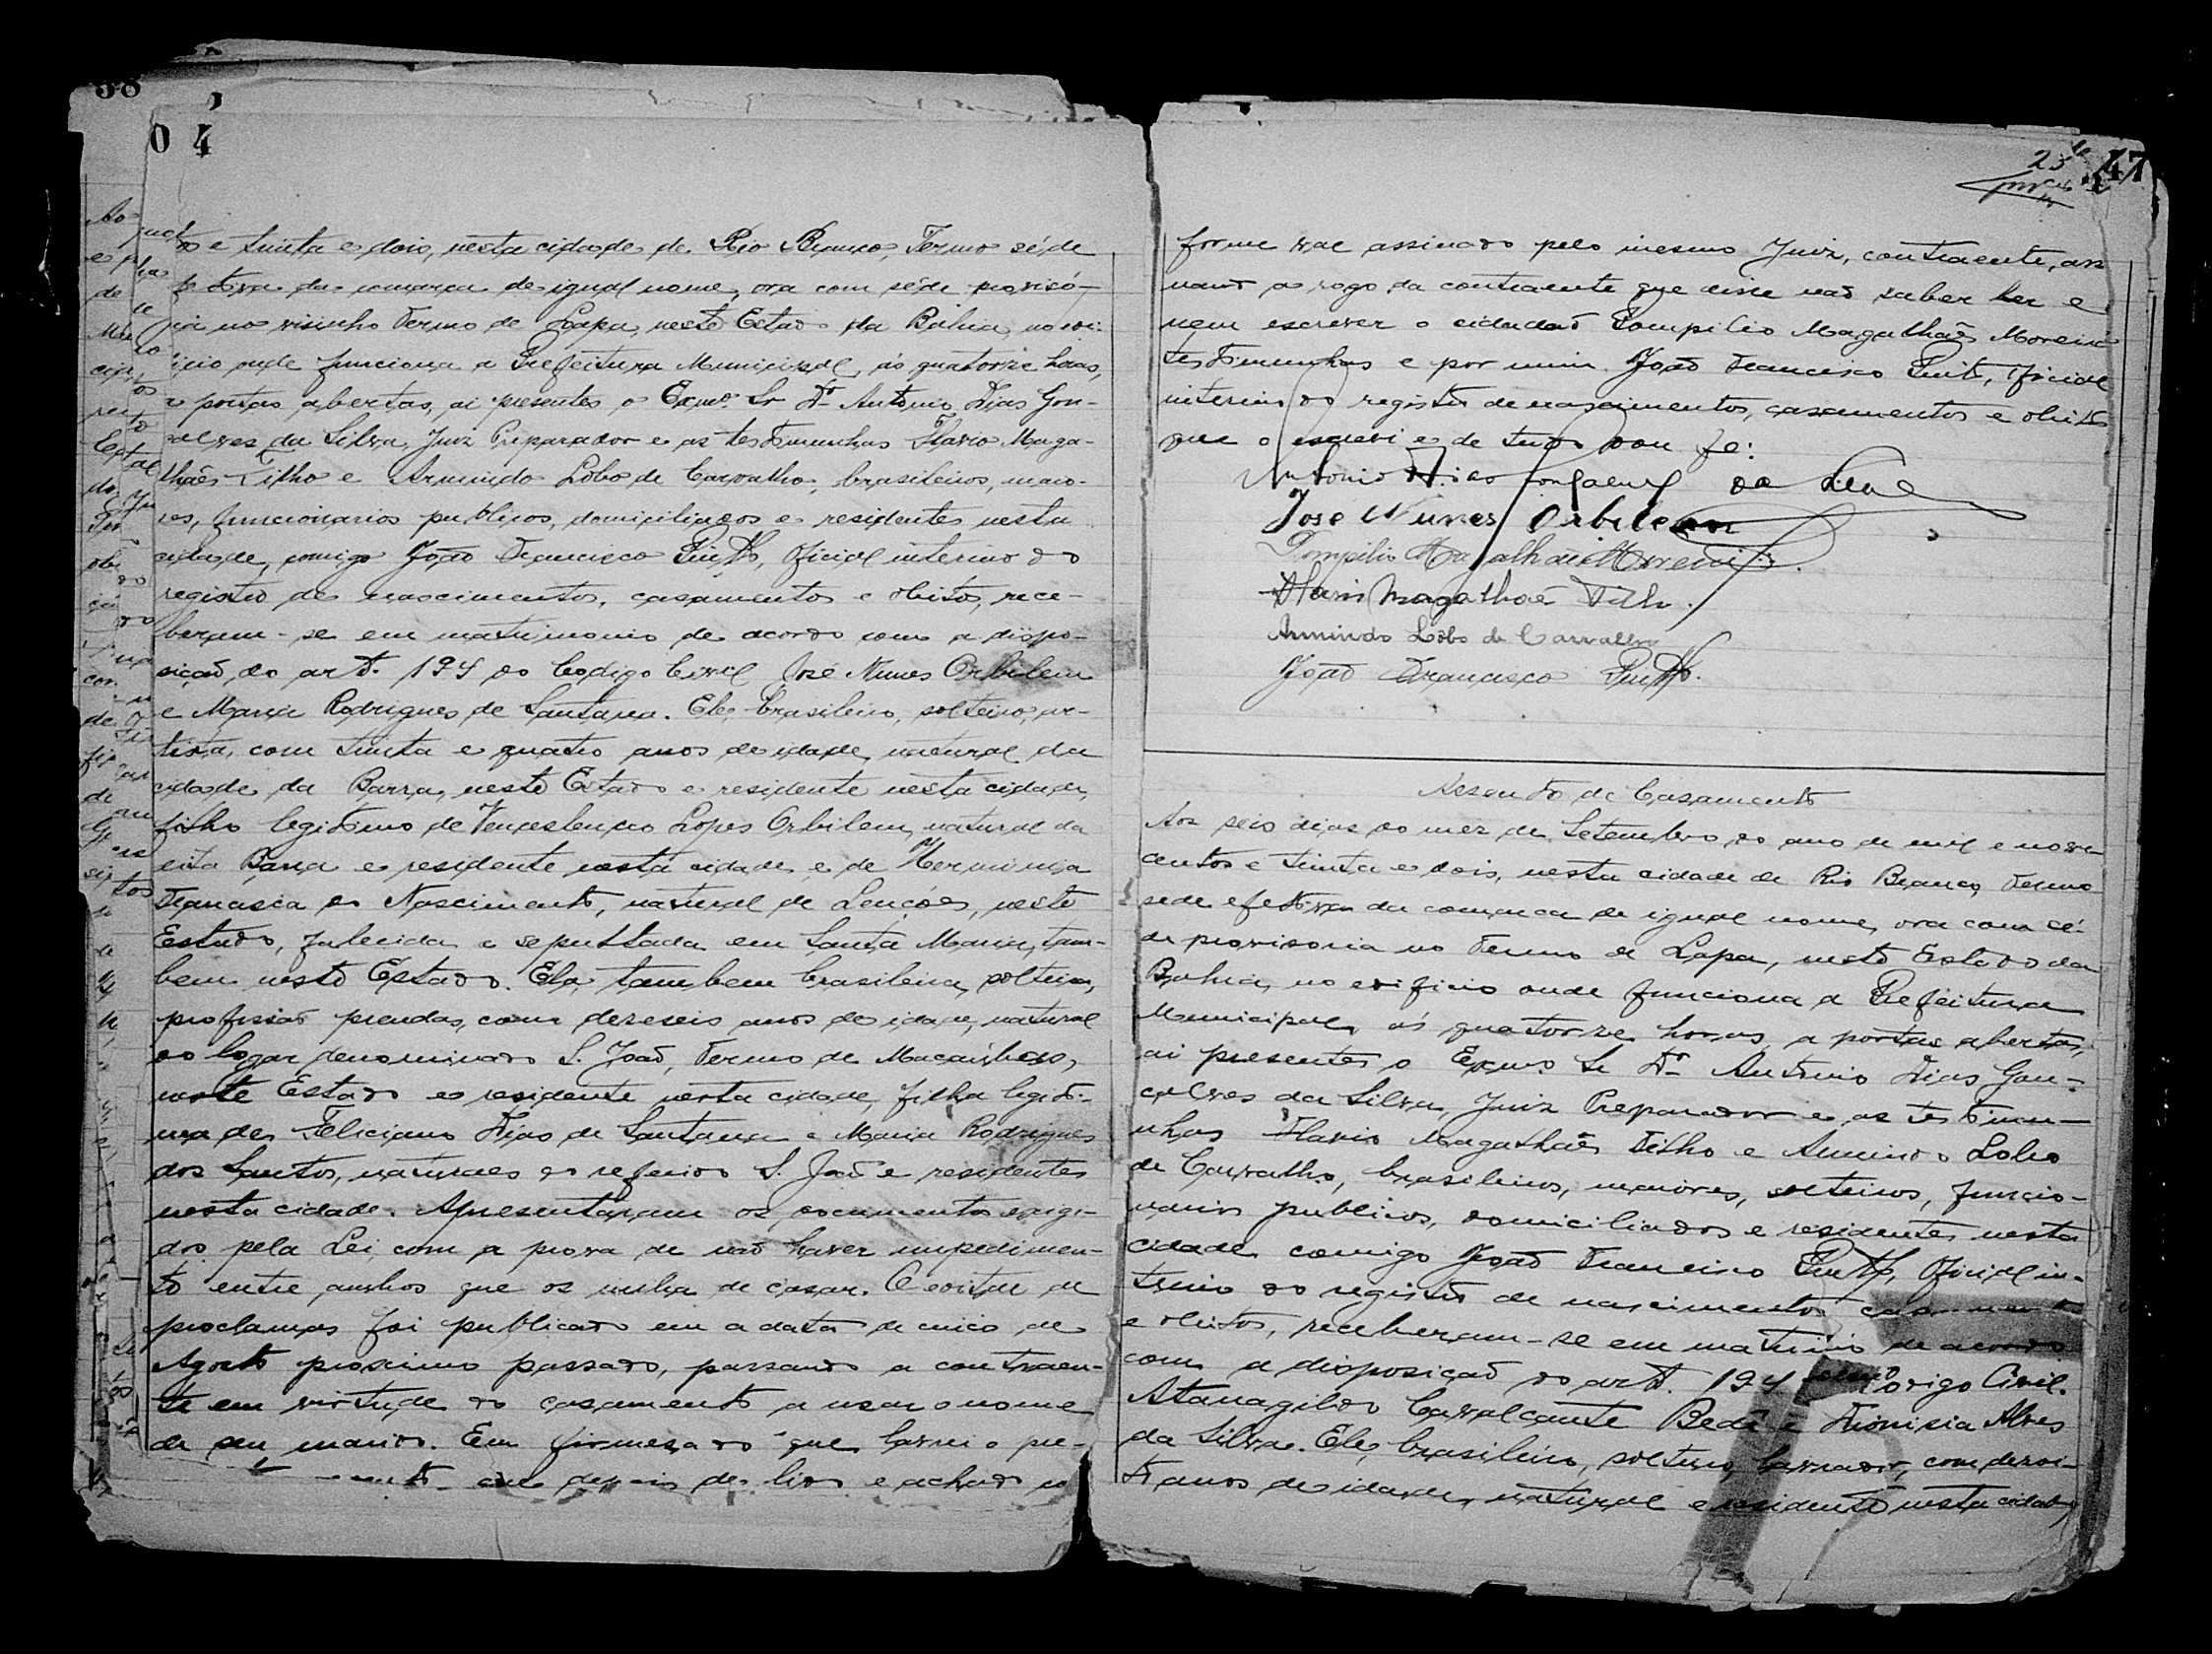 38
0 4
to e trinta e dois, nesta cidade de Rio Branco, Termo séde
da comarca de igual nome, ora com séde provisó-
ria no visinho Termo de Lapa, neste Estado da Bahia, no edi-
ficio onde funciona a Prefeitura Municipal, ás quatorze horas,
a portas abertas, ai presentes o Exmo. Sr. Dr. Antonio Dias Gon-
çalves da Silva, Juiz Preparador e as testimunhas Flavio Maga-
lhães Filho e Armindo Lobo de Carvalho, brasileiros, maio-
res, funcionarios publicos, domiciliados e residentes nesta
cidade, comigo João Francisco Pinto, Oficial interino do
registro de nascimentos, casamentos e obitos, rece-
beram-se em matrimonio de acordo com a dispo-
sição do art. 194 do Codigo Civil José Nunes Orbilem
e Maria Rodrigues de Santana. Ele, brasileiro, solteiro, ar-
tista, com trinta e quatro anos de idade, natural da
cidade da Barra, neste Estado e residente nesta cidade,
filho legitimo de Venceslenço Lopes Orbilem, natural da
dita Barra e residente nesta cidade e de Herminia
Francisca do Nascimento, natural de Lençóes, neste
Estado, falecida e sepultada em Santa Maria, tam-
bem neste Estado. Ela, tambem brasileira, solteira,
profissão prendas, com dezeseis anos de idade, natural
do logar denominado S. João, Termo de Macaúbas,
neste Estado e residente nesta cidade, filha legiti-
ma de Feliciano Dias de Santana e Maria Rodrigues
dos Santos, naturaes do referido S. João e residentes
nesta cidade. Apresentaram os documentos exigi-
dos pela Lei, com a prova de não haver impedimen-
to entre ambos que os iniba de casar. O edital de
proclamas foi publicado em a data de cinco de
Agosto proximo passado, passando a contraen-
te em virtude do casamento a usar o nome
de seu marido. Em firmesa do que lavrei o pre-
que depois de lido e achado co
23
47
forme vae assinado pelo mesmo Juiz, contraente, assi
nando a rogo da contraente que disse não saber ler e
nem escrever o cidadão Pompilio Magalhães Moreira
testimunhas e por mim João Francisco Pinto, Oficial
interino do registro de nascimentos, casamentos e obitos
que o escrevi e de tudo dou fé:
Antonio Dias Gonçalves da Silva
José Nunes Orbilem
Pompilio Magalhães Moreira
Flavio Magalhães Filho
Armindo Lobo de Carvalho
João Francisco Pinto.
Assento de Casamento
Aos seis dias do mez de Setembro do ano de mil e nove-
centos e trinta e dois, nesta cidade de Rio Branco, Termo
séde efetiva da comarca de igual nome, ora com sé-
de provisoria no Termo de Lapa, neste Estado da
Bahia, no edificio onde funciona a Prefeitura
Municipal, ás quatorze horas, a portas abertas,
ai presentes o Exmo. Sr. Dr. Antonio Dias Gon-
çalves da Silva, Juiz Preparador e as testimu-
nhas Flavio Magalhães Filho e Armindo Lobo
de Carvalho, brasileiros, maiores, solteiros, funcio-
narios publicos, domiciliados e residentes nesta
cidade, comigo João Francisco Pinto, Oficial in-
terino do registro de nascimentos casamentos
e obitos, receberam-se em matrimonio de acordo
com a disposição do art. 194 do Codigo Civil.
Atanagildo Cavalcante Bedê e Dionisia Alves
da Silva. Ele, brasileiro, solteiro, lavrador, com dezoi-
to anos de idade, natural e residente nesta cidade,